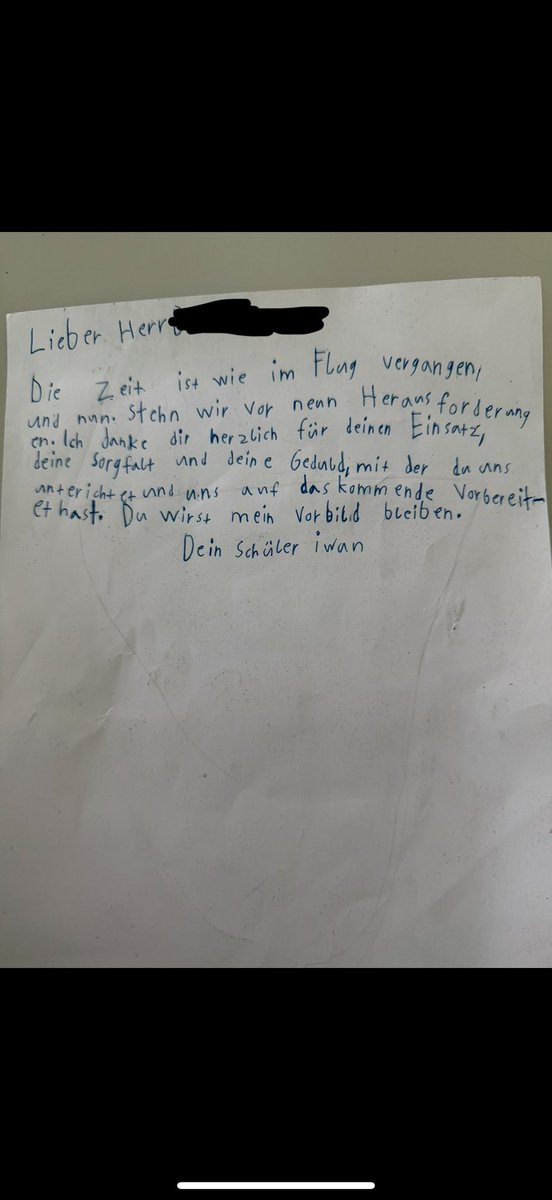 Lieber Herr
Die Zeit ist wie im Flug vergangen,
und nun. Stehn wir vor neun Herausforderung
en. Ich danke dir herzlich für deinen Einsatz,
deine Sorgfalt und deine Geduld, mit der du uns
unterichtet und uns auf das kommende Vorbereit-
et hast. Du wirst mein Vorbild bleiben.
Dein Schüler iwan